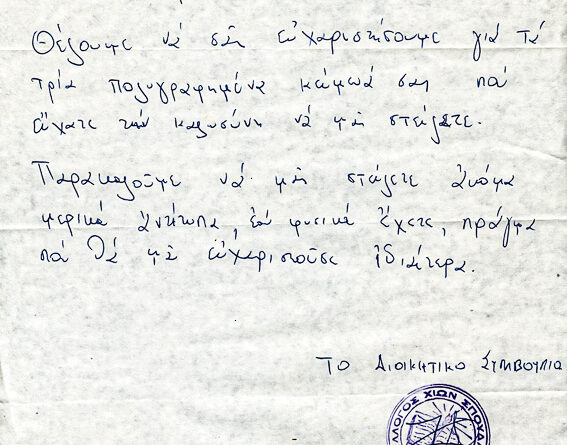 Θέλουμε νά σᾶς εὐχαριστήσουμε γιά τά
τρία πολυγραφημένα κείμενά σας πού
εἴχατε τήν καλωσύνη νά μᾶς στείλετε.
Παρακαλοῦμε νά μᾶς στείλετε ἀκόμα
μερικά ἀντίτυπα, ἐάν φυσικά ἔχετε, πράγμα
πού θά μᾶς εὐχαριστοῦσε ἰδιαίτερα.
ΤΟ ΔΙΟΙΚΗΤΙΚΟ ΣΥΜΒΟΥΛΙΟ
ΛΛΟΓΟΣ ΧΙΩΝ ΣΠΟΥΔ